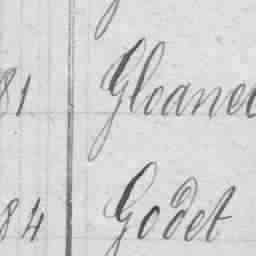 81 Gloanec
84 Godet